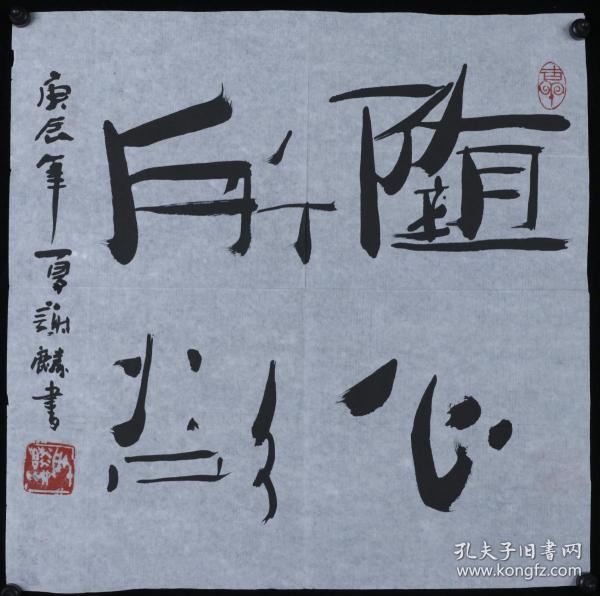 随心
所欲
庚辰年夏谢麟書
孔夫子旧書网
www.kongfz.com